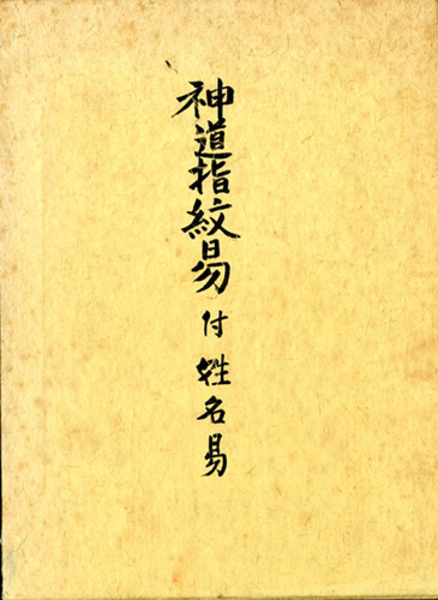 神道指紋易 付 姓名易